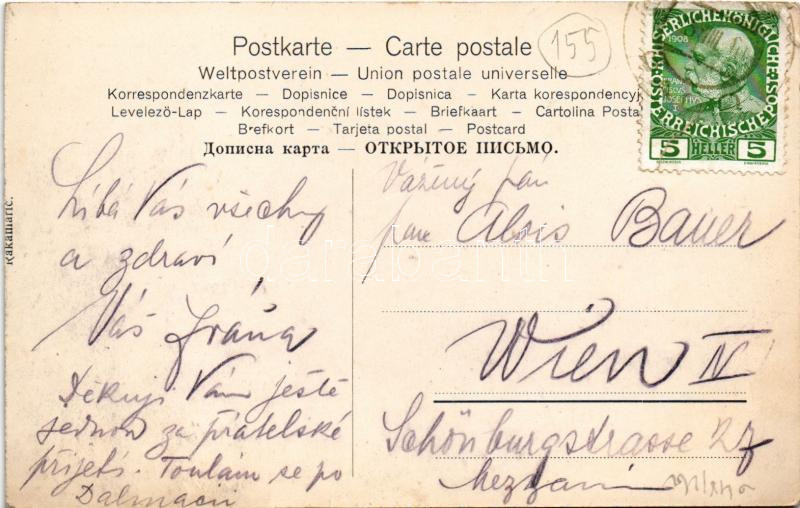 Postkarte — Carte postale
155
Weltpostverein — Union postale universelle
Korrespondenzkarte — Dopisnice — Dopisnica — Karta korespondencyj
Levelező-Lap — Korespondenční lístek — Briefkaart — Cartolina Posta
Brefkort — Tarjeta postal — Postcard
Дописна карта — ОТКРЫТОЕ ПИСЬМО.
KAISERLICHEKÖNIGLICHE
ÖSTERREICHISCHE POST
1908
5 HELLER 5
Rakamarić.
Líbá Vás všechny
a zdraví
Váš
Děkuji Vám ještě
jednou za přátelské
přijetí. Toulám se po
Dalmacii
Vážený pán
pan Alois Bauer
Wien IV
Schönburgstrasse 27
Mezzanin
darabanth